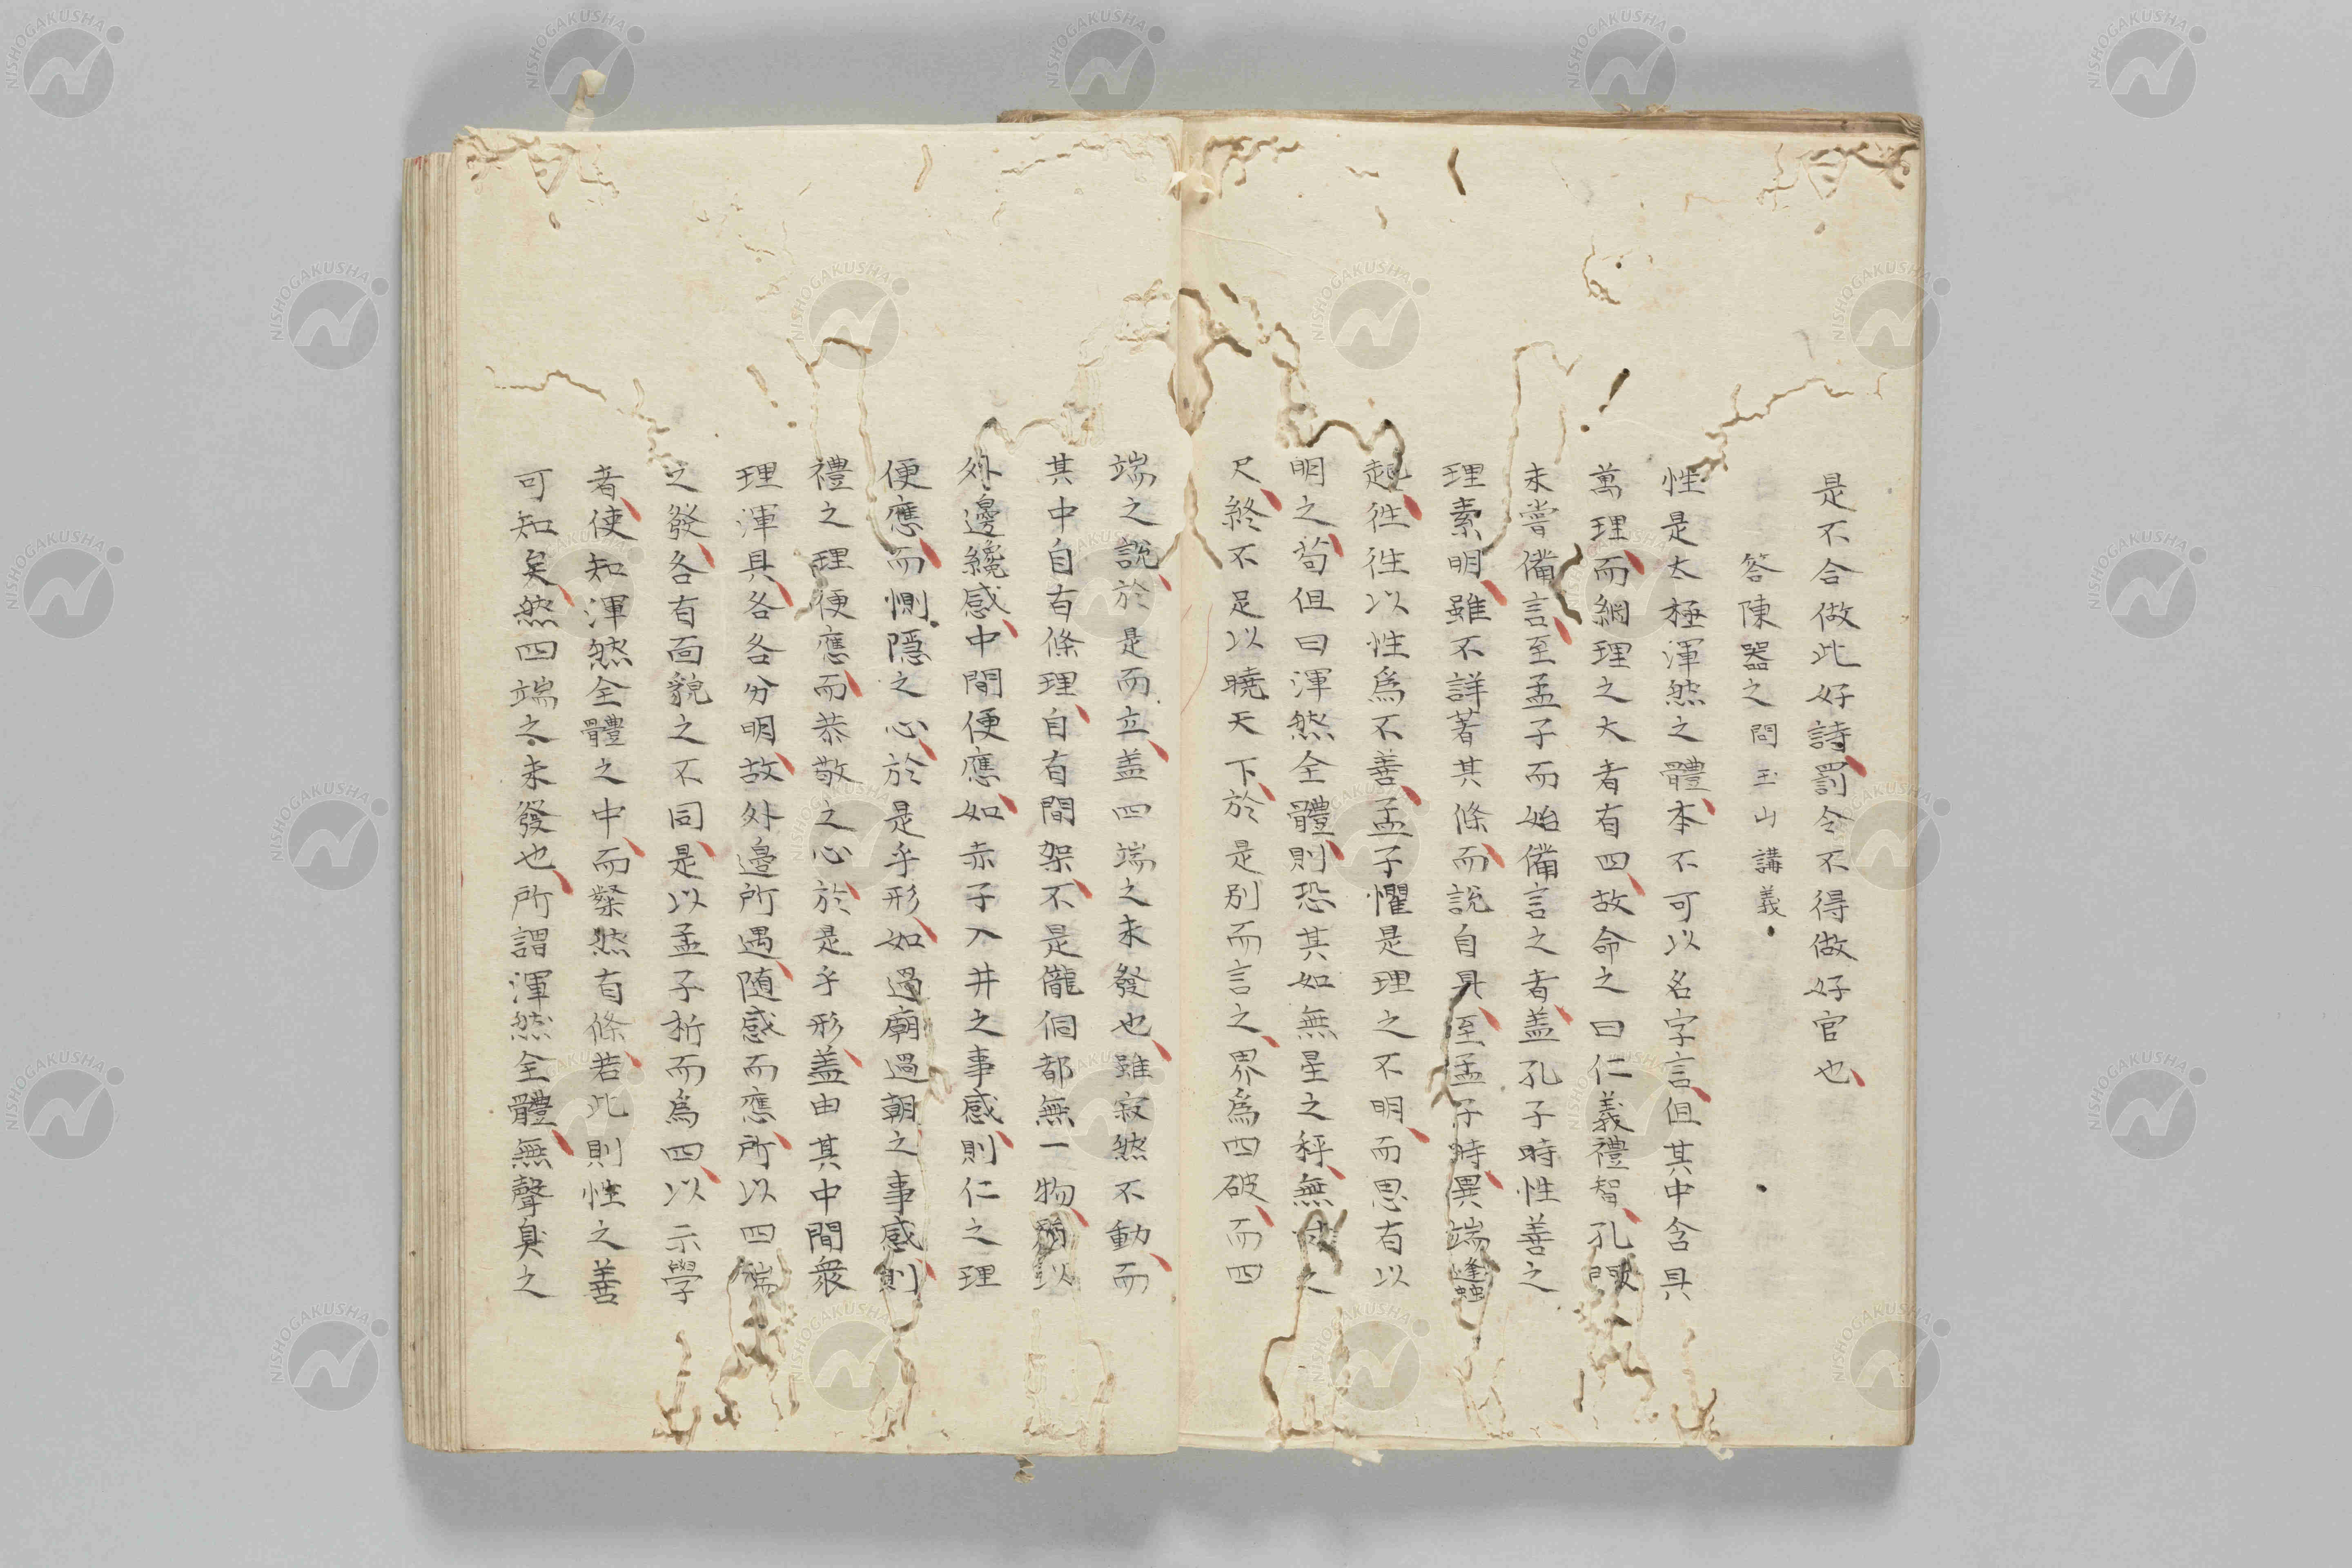 是不合做此好詩罰令不得做好官也
答陳器之問玉山講義
性是太極渾然之體本不可以名字言但其中含具
萬理而綱理之大者有四故命之曰仁義禮智孔門
未嘗備言至孟子而始備言之者盖孔子時性善之
理素明雖不詳著其條而說自具至孟子時異端蠭
起徃徃以性爲不善孟子懼是理之不明而思有以
明之苟但曰渾然全體則恐其如無星之秤無寸之
尺終不足以曉天下於是別而言之界爲四破而四
端之說於是而立盖四端之未發也雖寂然不動而
其中自有條理自有間架不是儱侗都無一物所以
外邊纔感中間便應如赤子入井之事感則仁之理
便應而惻隱之心於是乎形如過廟過朝之事感則
禮之理便應而恭敬之心於是乎形盖由其中間衆
理渾具各各分明故外邊所遇随感而應所以四端
之發各有面貌之不同是以孟子析而爲四以示學
者使知渾然全體之中而粲然有條若此則性之善
可知矣然四端之未發也所謂渾然全體無聲臭之
NISHOGAKUSHA